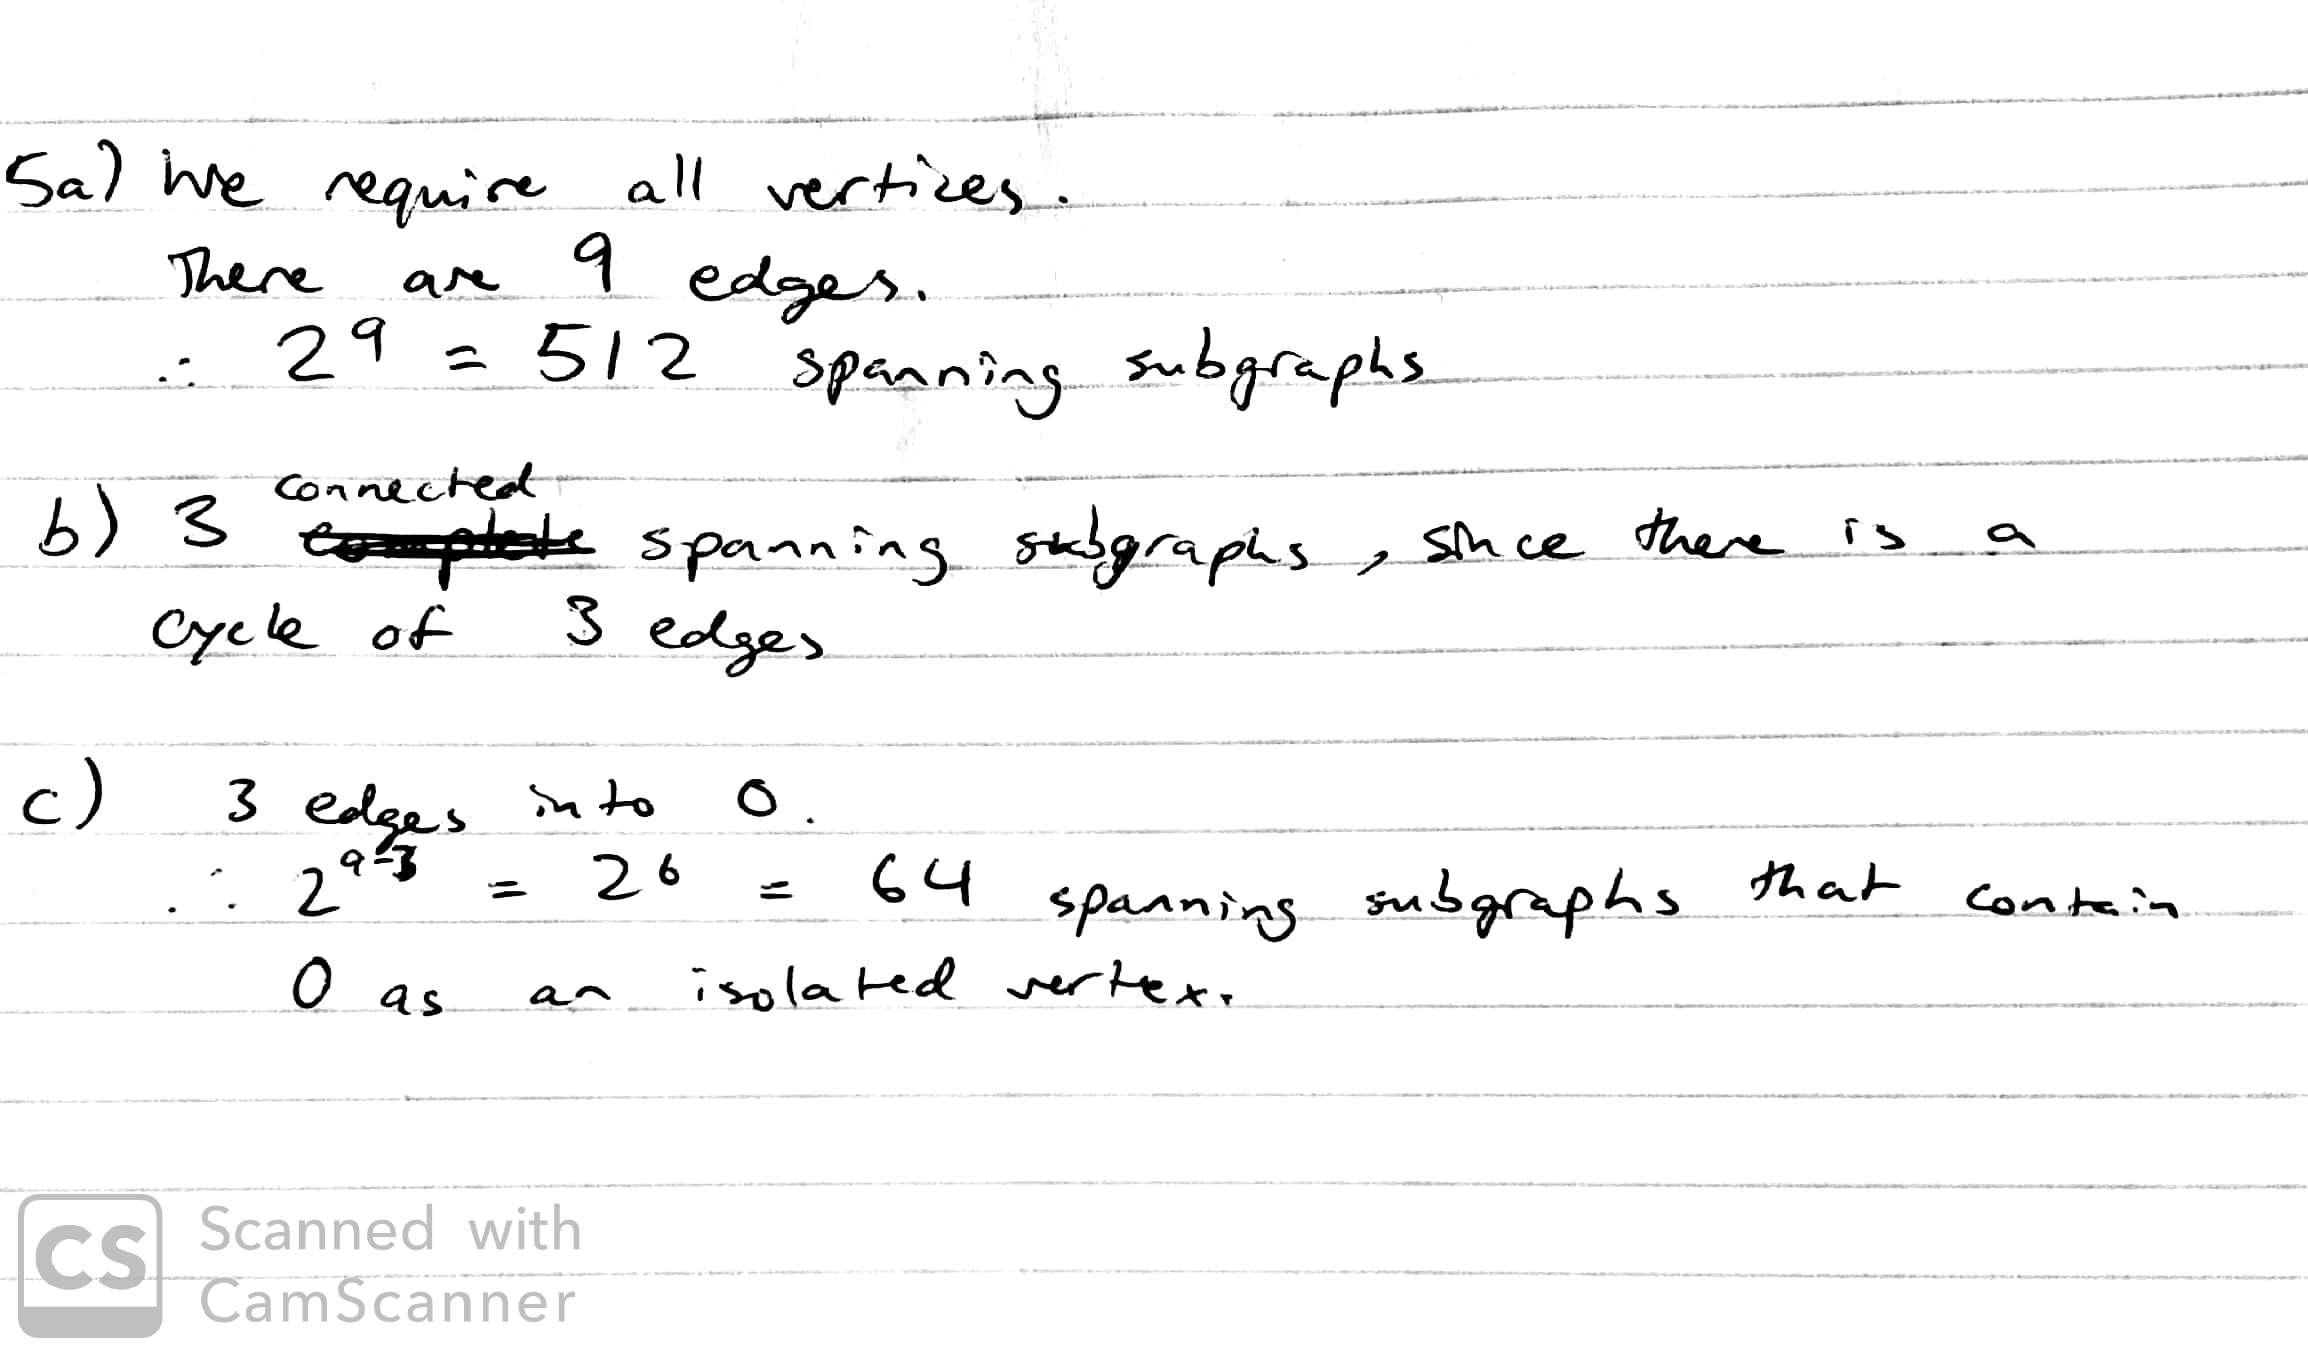 5a) We require all vertices.
There are 9 edges.
∴ 2⁹ = 512 spanning subgraphs
connected
b) 3 complete spanning subgraphs, since there is a
cycle of 3 edges
c) 3 edges into 0.
∴ 2⁹⁻³ = 2⁶ = 64 spanning subgraphs that contain
0 as an isolated vertex.
CS Scanned with
CamScanner